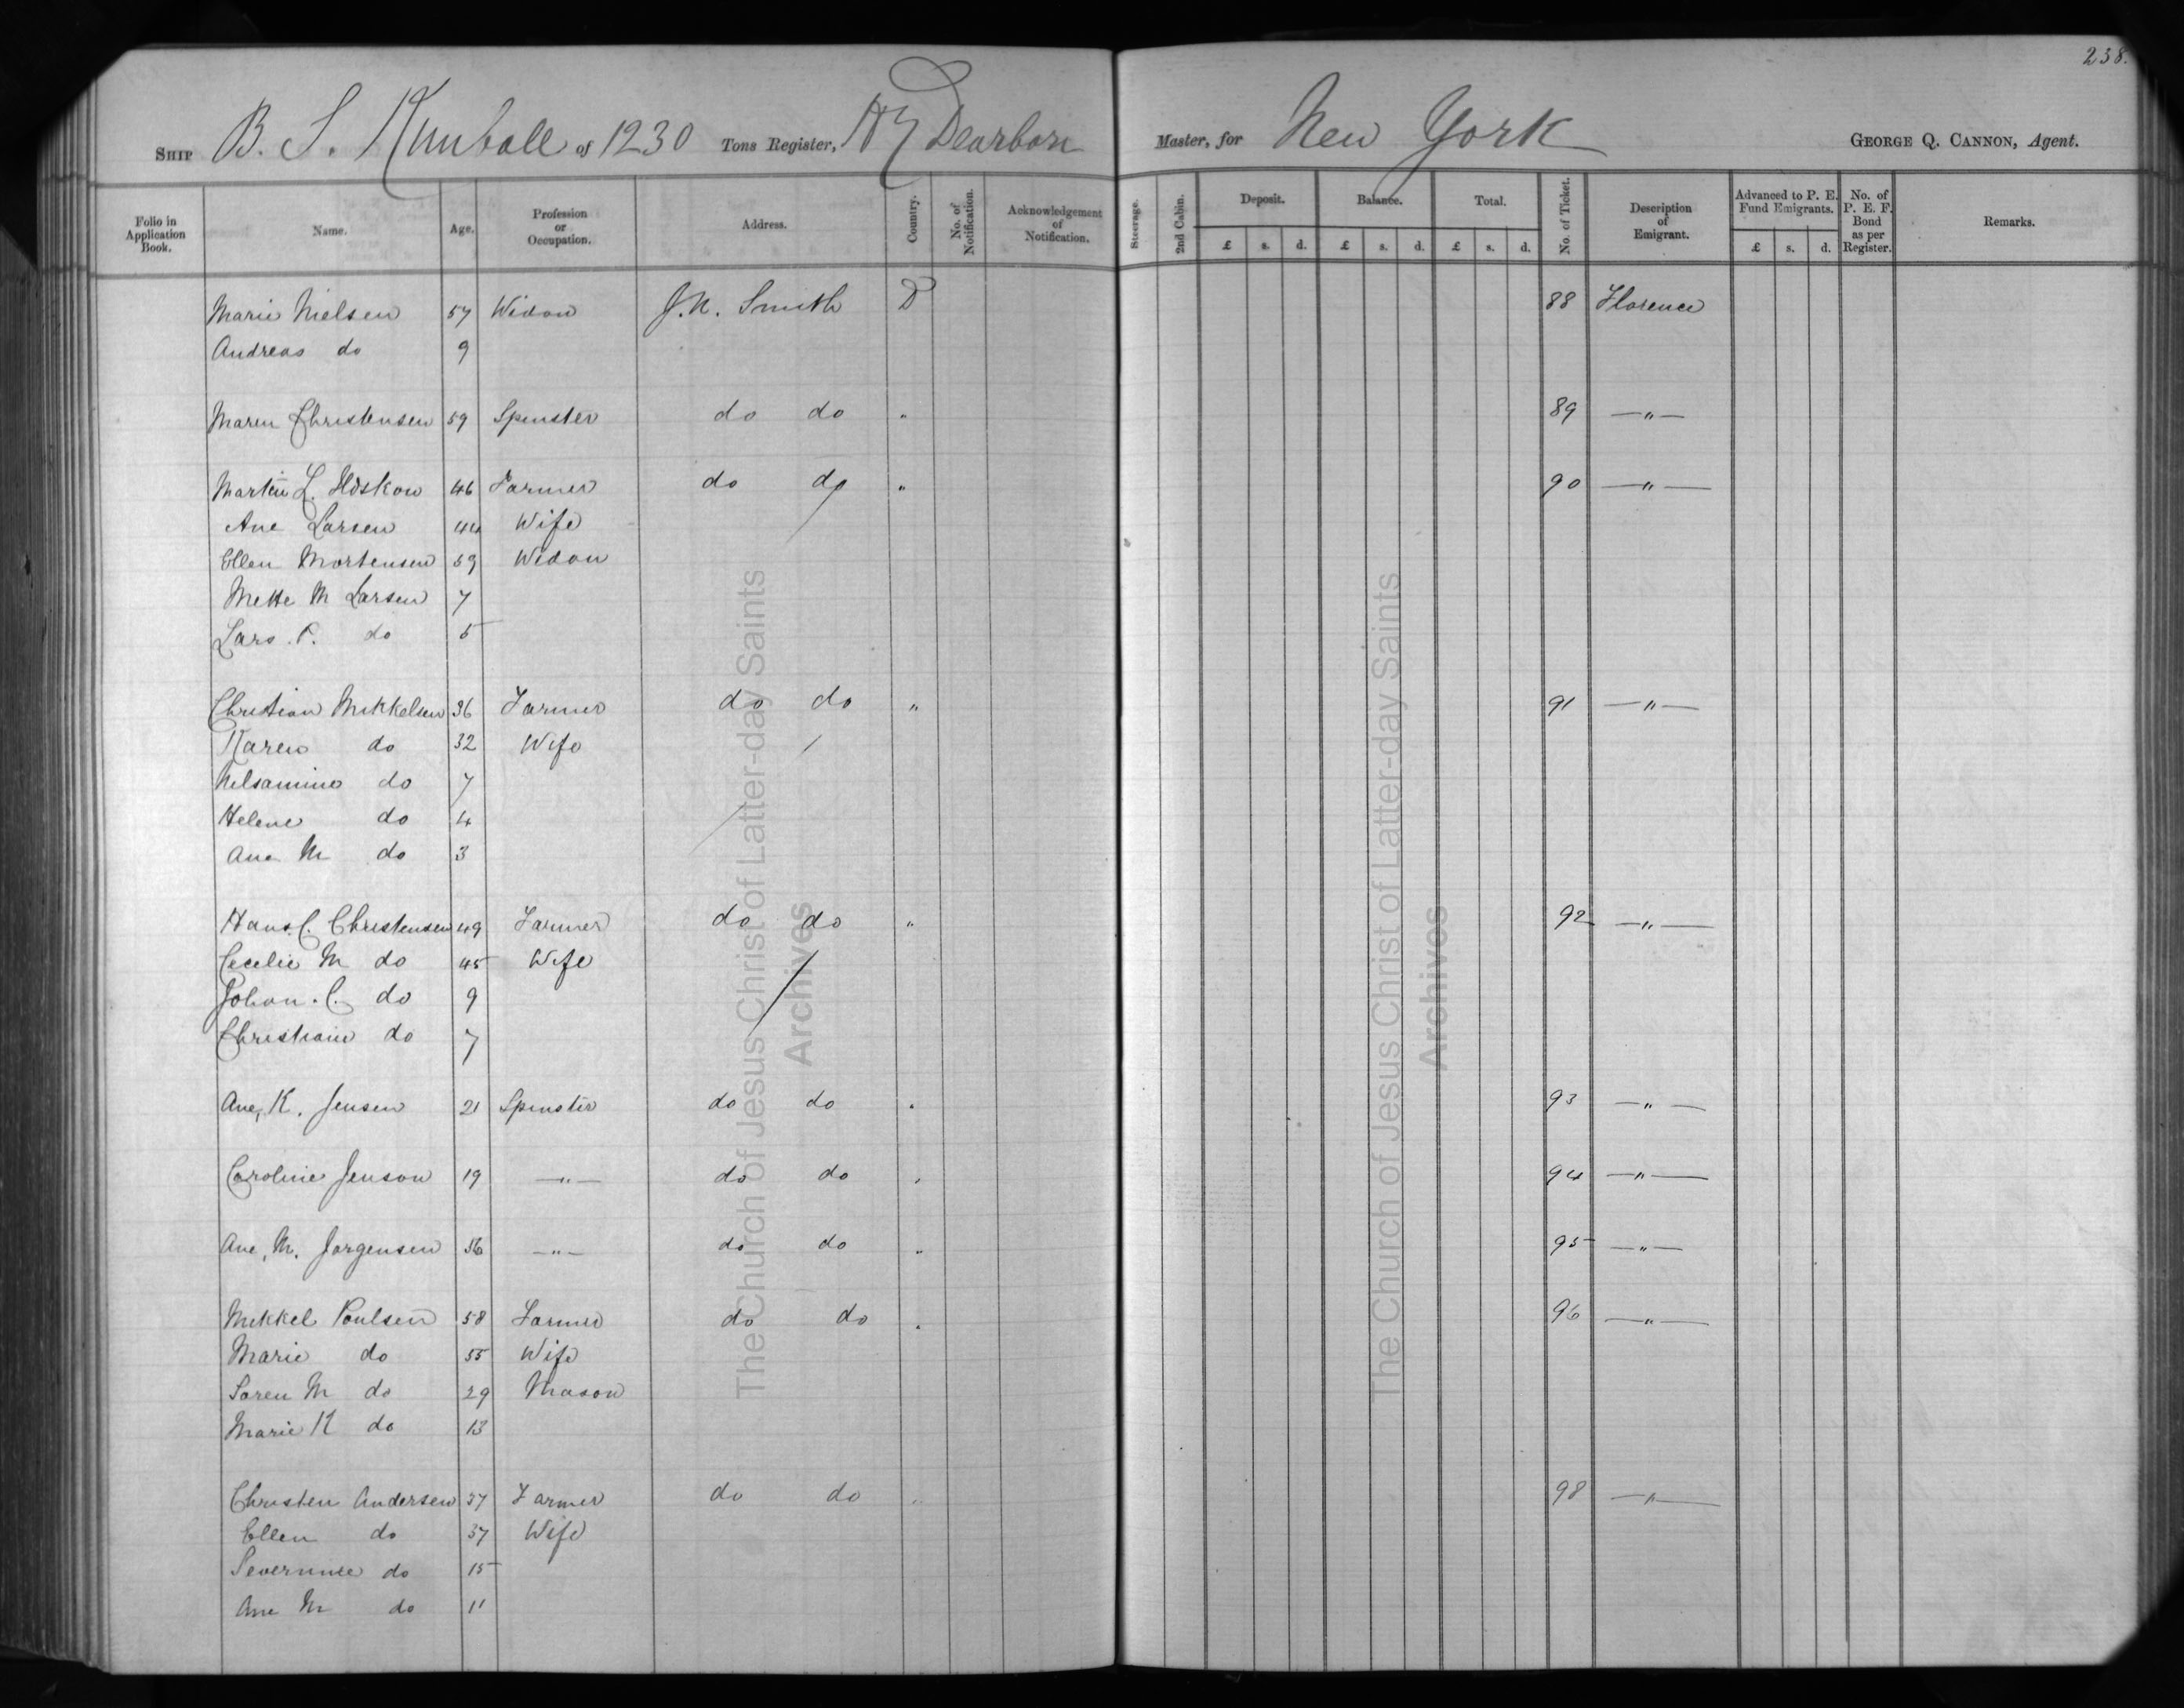 238.
SHIP B. S. Kimball of 1230 Tons Register, H Dearborn Master, for New York GEORGE Q. CANNON, Agent.
Folio in Application Book. Name. Age. Profession or Occupation. Address. Country. No. of Notification. Acknowledgement of Notification. Steerage. 2nd Cabin. Deposit. Balance. Total. No. of Ticket. Description of Emigrant. Advanced to P. E. Fund Emigrants. No. of P. E. F. Bond as per Register. Remarks.
£ s. d. £ s. d. £ s. d. £ s. d.
Marie Nielsen 57 Widow J. N. Smith D 88 Florence
Andreas do 9
Maren Christensen 59 Spinster do do " 89 —"—
Martin L. Hoskow 46 Farmer do do " 90 —"—
Ane Larsen 44 Wife
Ellen Mortensen 59 Widow
Mette M Larsen 7
Lars. P. do 5
Christian Mikkelsen 36 Farmer do do " 91 —"—
Karen do 32 Wife
Nelsamine do 7
Helene do 4
Ane M do 3
Hans. C. Christensen 49 Farmer do do " 92 —"—
Cecelie M do 45 Wife
Johan. C. do 9
Christiane do 7
Ane, K. Jensen 21 Spinster do do " 93 —"—
Caroline Jenson 19 —"— do do " 94 —"—
Ane, M. Jorgensen 56 —"— do do " 95 —"—
Mikkel Poulsen 58 Farmer do do " 96 —"—
Marie do 55 Wife
Soren M do 29 Mason
Marie K do 13
Christen Andersen 37 Farmer do do " 98 —"—
Ellen do 37 Wife
Severnine do 15
Ane M do 11
The Church of Jesus Christ of Latter-day Saints
Archives
The Church of Jesus Christ of Latter-day Saints
Archives